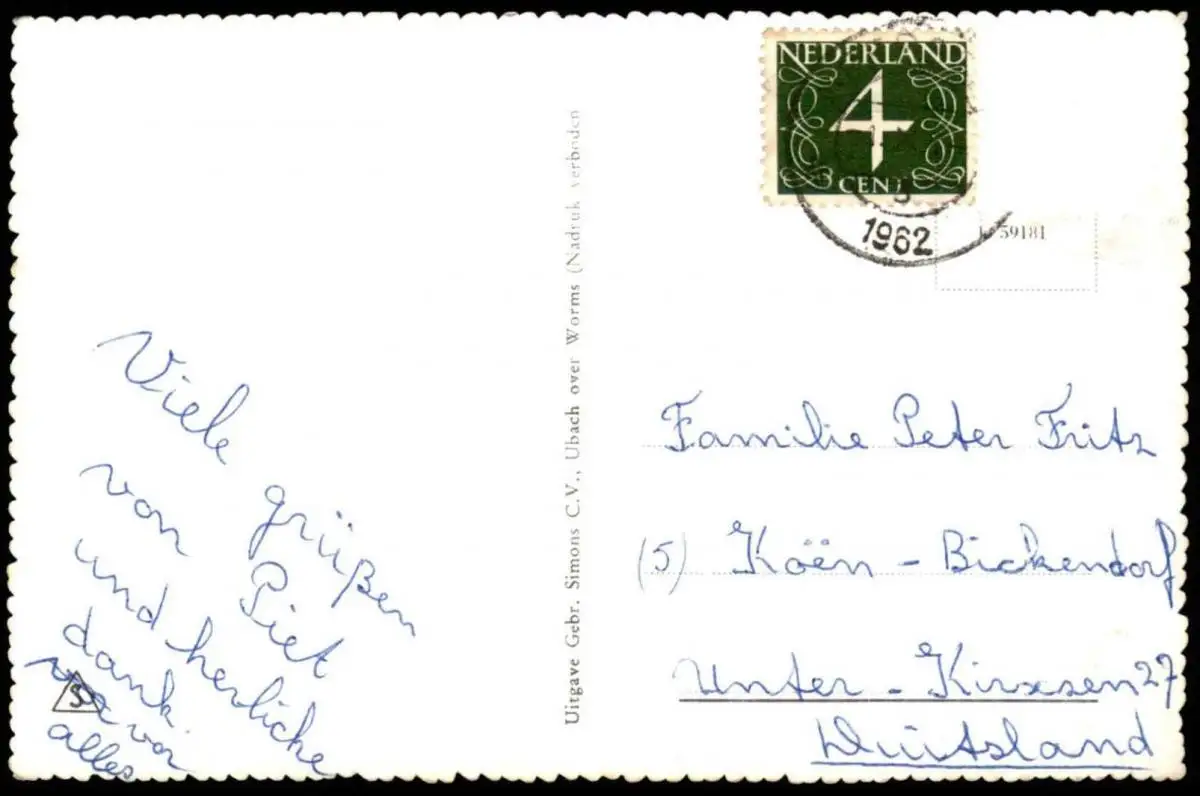 NEDERLAND
4
CENT
5
1962
L 59181
Viele grüßen
von Piet
und herliche
dank
vor
alles
S
Uitgave Gebr. Simons C.V., Ubach over Worms (Nadruk verboden
Familie Peter Fritz
(5) Köën - Bickendorf
Unter - Kirxsen 27
Duitsland